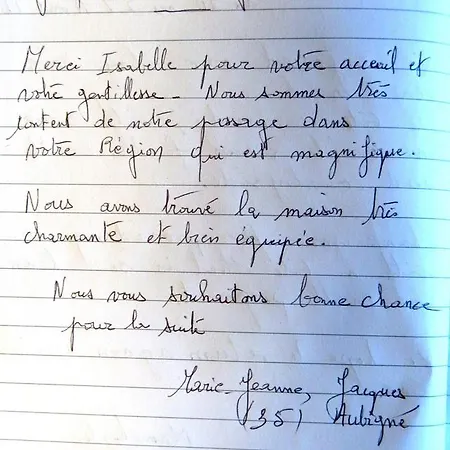 Merci Isabelle pour votre acceuil et
votre gentillesse - Nous sommes très
content de notre passage dans
votre Région qui est magnifique.
Nous avons trouvé la maison très
charmante et bien équipée.
Nous vous souhaitons bonne chance
pour la suite
Marie-Jeanne, Jacques
(35) Aubigné